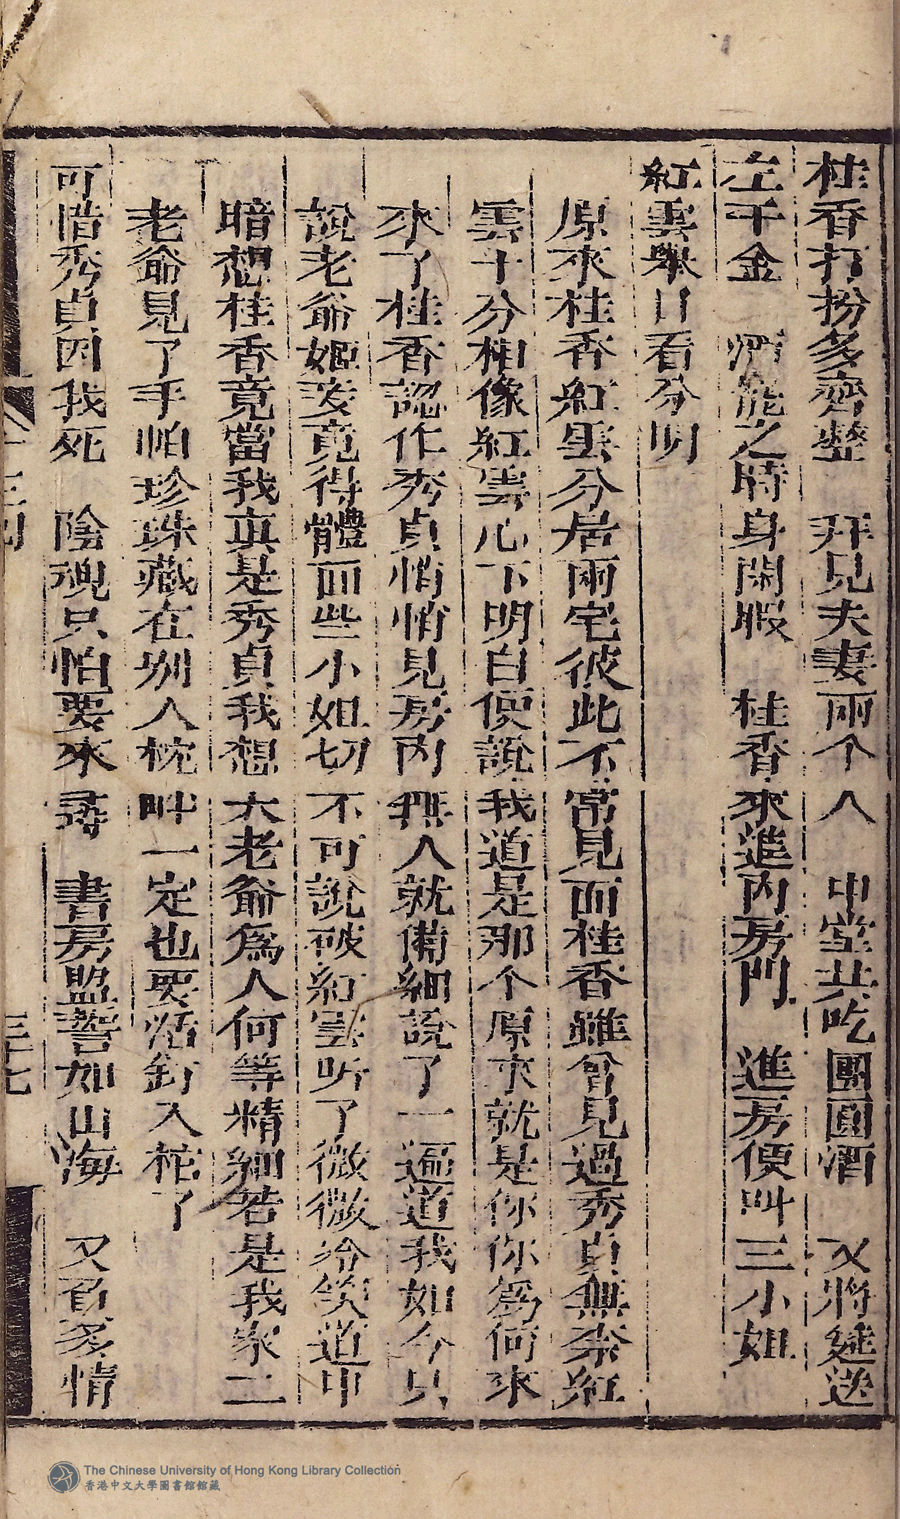 桂香打扮多齊整　拜見夫妻兩个人　中堂共吃團圓酒　又將筵送
左千金　酒能之時身閑暇　桂香來進內房門　進房便叫三小姐
紅雲舉目看分明
原來桂香紅雲分居兩宅彼此不常見面桂香雖曾見過秀貞無奈紅
雲十分相像紅雲心下明白便說我道是那个原來就是你你爲何來
來了桂香認作秀貞悄悄見房內無人就備細說了一遍道我如今只
說老爺姬妾竟得體面些小姐切不可說破紅雲听了微微冷笑道中
暗想桂香竟當我眞是秀貞我想大老爺爲人何等精細若是我家二
老爺見了手帕珍珠藏在圳人枕畔一定也要活釘入棺了
可惜秀貞因我死　陰魂只怕要來尋　書房盟誓如山海　又負多情
三七
The Chinese University of Hong Kong Library Collection
香港中文大學圖書館館藏